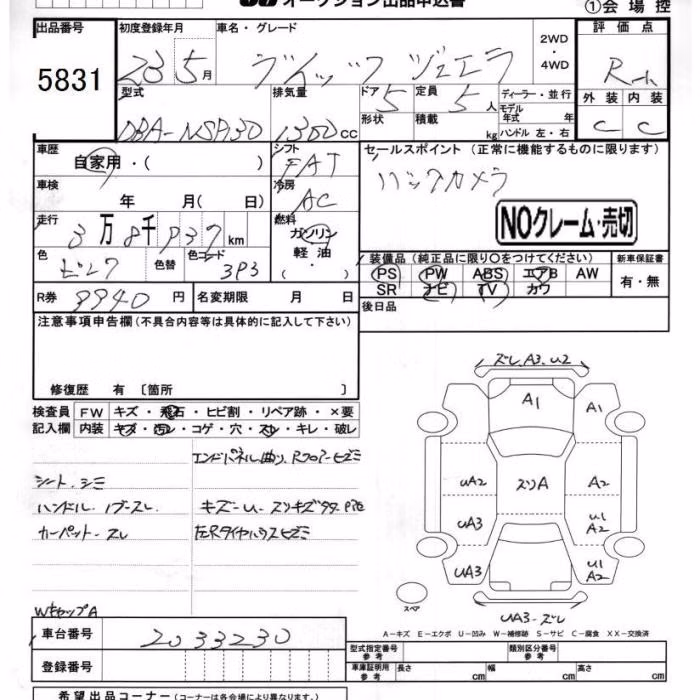 オークション出品申込書
①会場控
出品番号 初度登録年月 車名・グレード 評価点
5831 23 5月 ヴィッツ ジュエラ 2WD・4WD
型式 排気量 ドア 定員 ディーラー・並行 外装 内装
DBA-NSP130 1300cc 5 5人 モデル年式 年 C C
形状 積載 kg ハンドル 左・右
車歴 自家用・( ) シフト FAT セールスポイント (正常に機能するものに限ります)
車検 年 月( 日) 冷房 AC バックカメラ
走行 3万8千937km 燃料 ガソリン 軽油・ NOクレーム・売切
色 ピンク 色替 色コード 3P3
装備品(純正品に限り○をつけてください) 新車保証書
PS PW ABS エアB AW 有・無
SR ナビ TV カワ
R券 9940円 名変期限 月 日 後日品
注意事項申告欄(不具合内容等は具体的に記入して下さい)
修復歴 有 〔箇所 〕
検査員記入欄 FW キズ・飛石・ヒビ割・リペア跡・×要
内装 キズ・汚レ・コゲ・穴・スレ・キレ・破レ
エンドパネル曲り、Rフロアーヒズミ
シート・シミ
ハンドル・ノブ・スレ
キズ・U・スリキズ
カーペット・スレ
WキャップA
ズレ、A3、U2
A1 A1
UA2 スリA A2
UA3 U1 A2
UA3 U1 A2
スペア
UA3・ズレ
A－キズ E－エクボ U－凹み W－補修跡 S－サビ C－腐食 XX－交換済
車台番号 2033230
登録番号
型式指定番号 参考 類別区分番号 参考
車庫証明用 参考 長さ cm 幅 cm 高さ cm
希望出品コーナー(コーナーは各会場により異なります。)